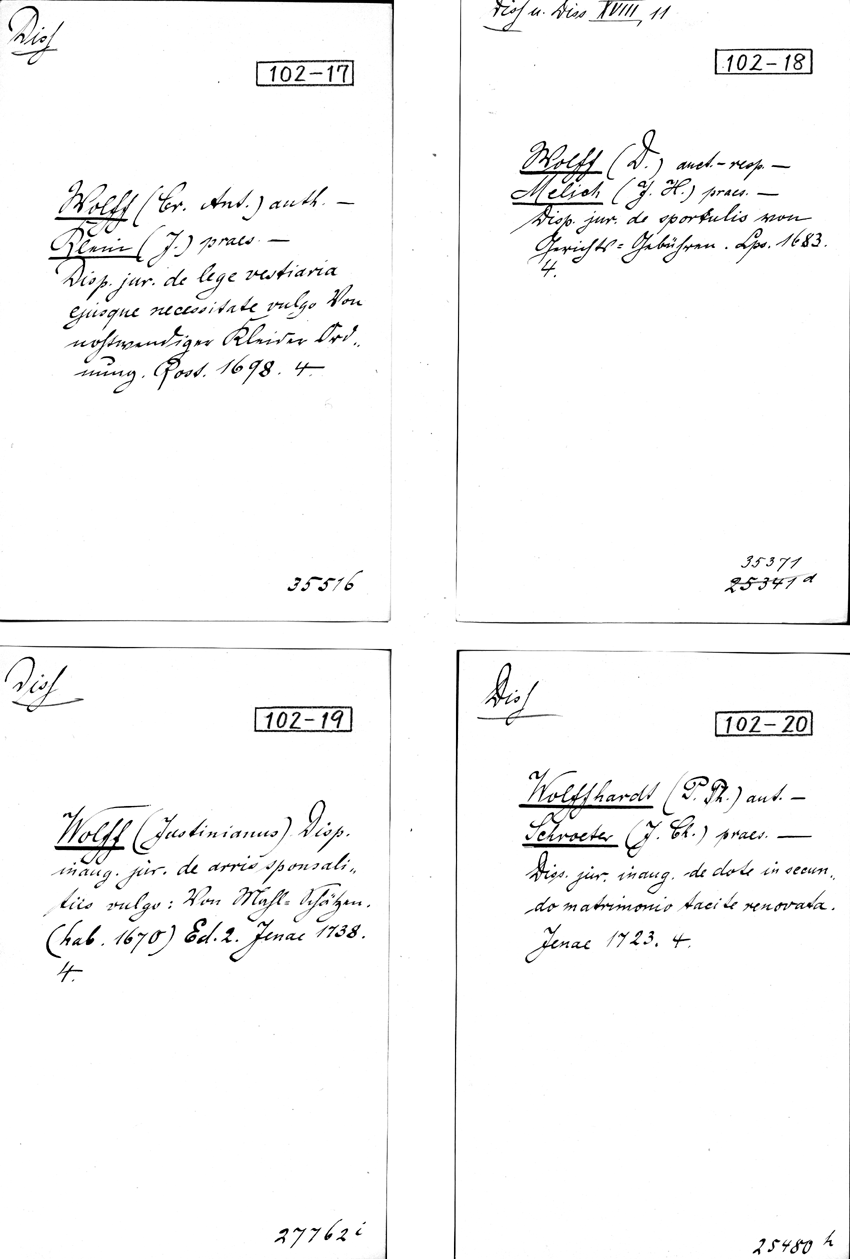 Diss
102-17
Wolff (Cr. Ant.) auth. —
Klein (J.) praes. —
Disp. jur. de lege vestiaria
ejusque necessitate vulgo Von
nohtwendiger Kleider Ord„
nung. Rost. 1698. 4
35516
Diss u. Diss XVIII, 11
102-18
Wolff (D.) auct.-resp. —
Melich (J. H.) praes. —
Disp. jur. de sportulis von
Gerichts=Gebühren. Lps. 1683.
4.
35371
25341 d
Diss
102-19
Wolff (Justinianus) Disp.
inaug. jur. de arris sponsali„
tiis vulgo: Von Mahl=Schätzen.
(hab. 1670) Ed. 2. Jenae 1738.
4.
27762 i
Diss
102-20
Wolffhardt (P. Ph.) aut. —
Schroeter (J. Ch.) praes. —
Diss. jur. inaug. de dote in secun„
do matrimonio tacite renovata.
Jenae 1723. 4.
25480 h